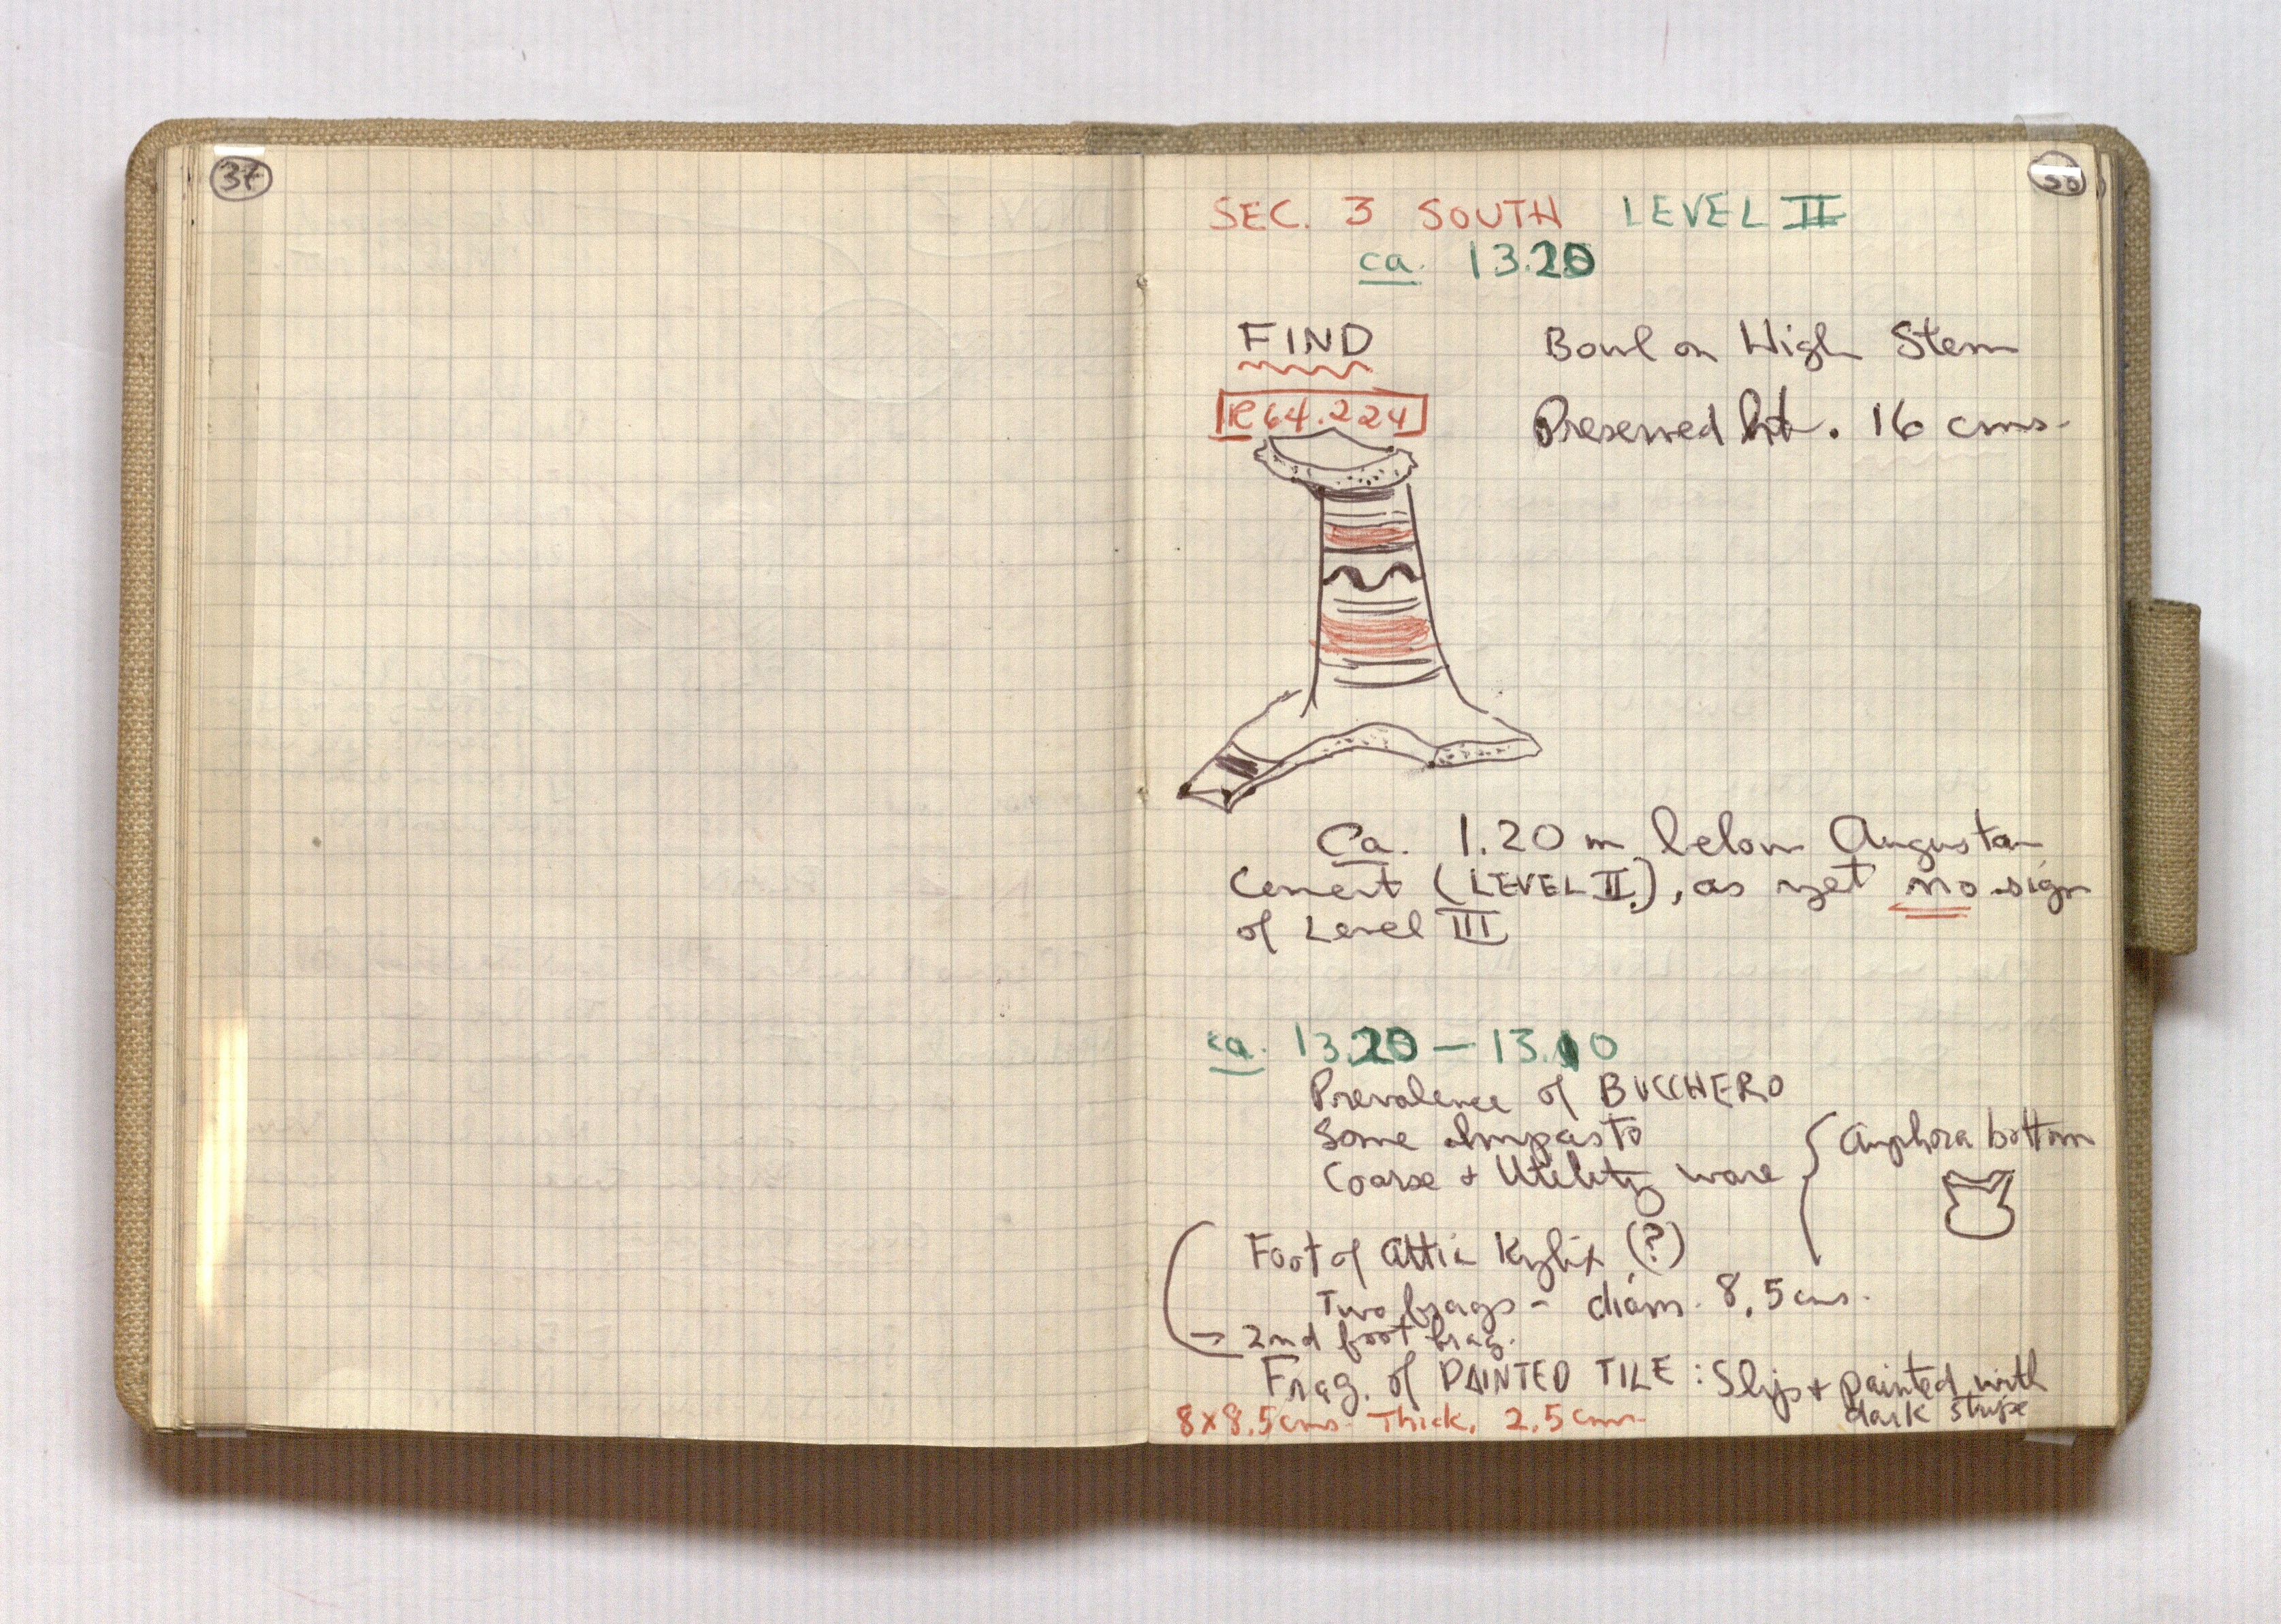 37
38
SEC. 3 SOUTH LEVEL II
ca. 13.20
FIND
Bowl on High Stem
R64.224
Preserved ht. 16 cms.
Ca. 1.20 m below Augustan
Cement (LEVEL II), as yet no sign
of Level III
ca. 13.20 — 13.10
Prevalence of BUCCHERO
Some Impasto
Coarse + Utility ware { Amphora bottom
Foot of Attic Kylix (?)
Two frags - diam. 8,5 cms.
→ 2nd foot frag.
Frag. of PAINTED TILE : Slip + painted with
dark stripe
8x8.5cms. Thick. 2.5 cms.